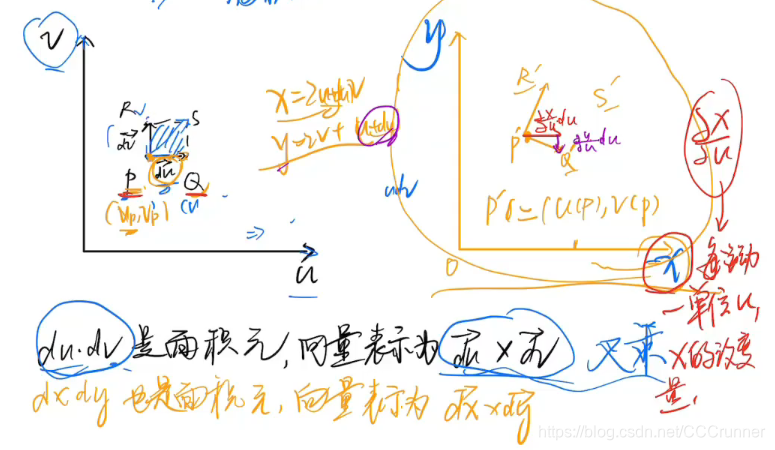 v
y
R
S
dv
du
P
Q
(Up, Vp)
(u
⇒
u
x=2u+
y=2v+ u+dv
u+v
R'
S'
∂x/∂u du
∂y/∂u du
P'
Q'
P'(=(U(P),V(P)
0
x
∂x/∂u
每变动
一单位u,
x的改变
量,
du·dv是面积元,向量表示为 du×dv 叉乘
dxdy 也是面积元,向量表示为 dx×dy
https://blog.csdn.net/CCCrunner